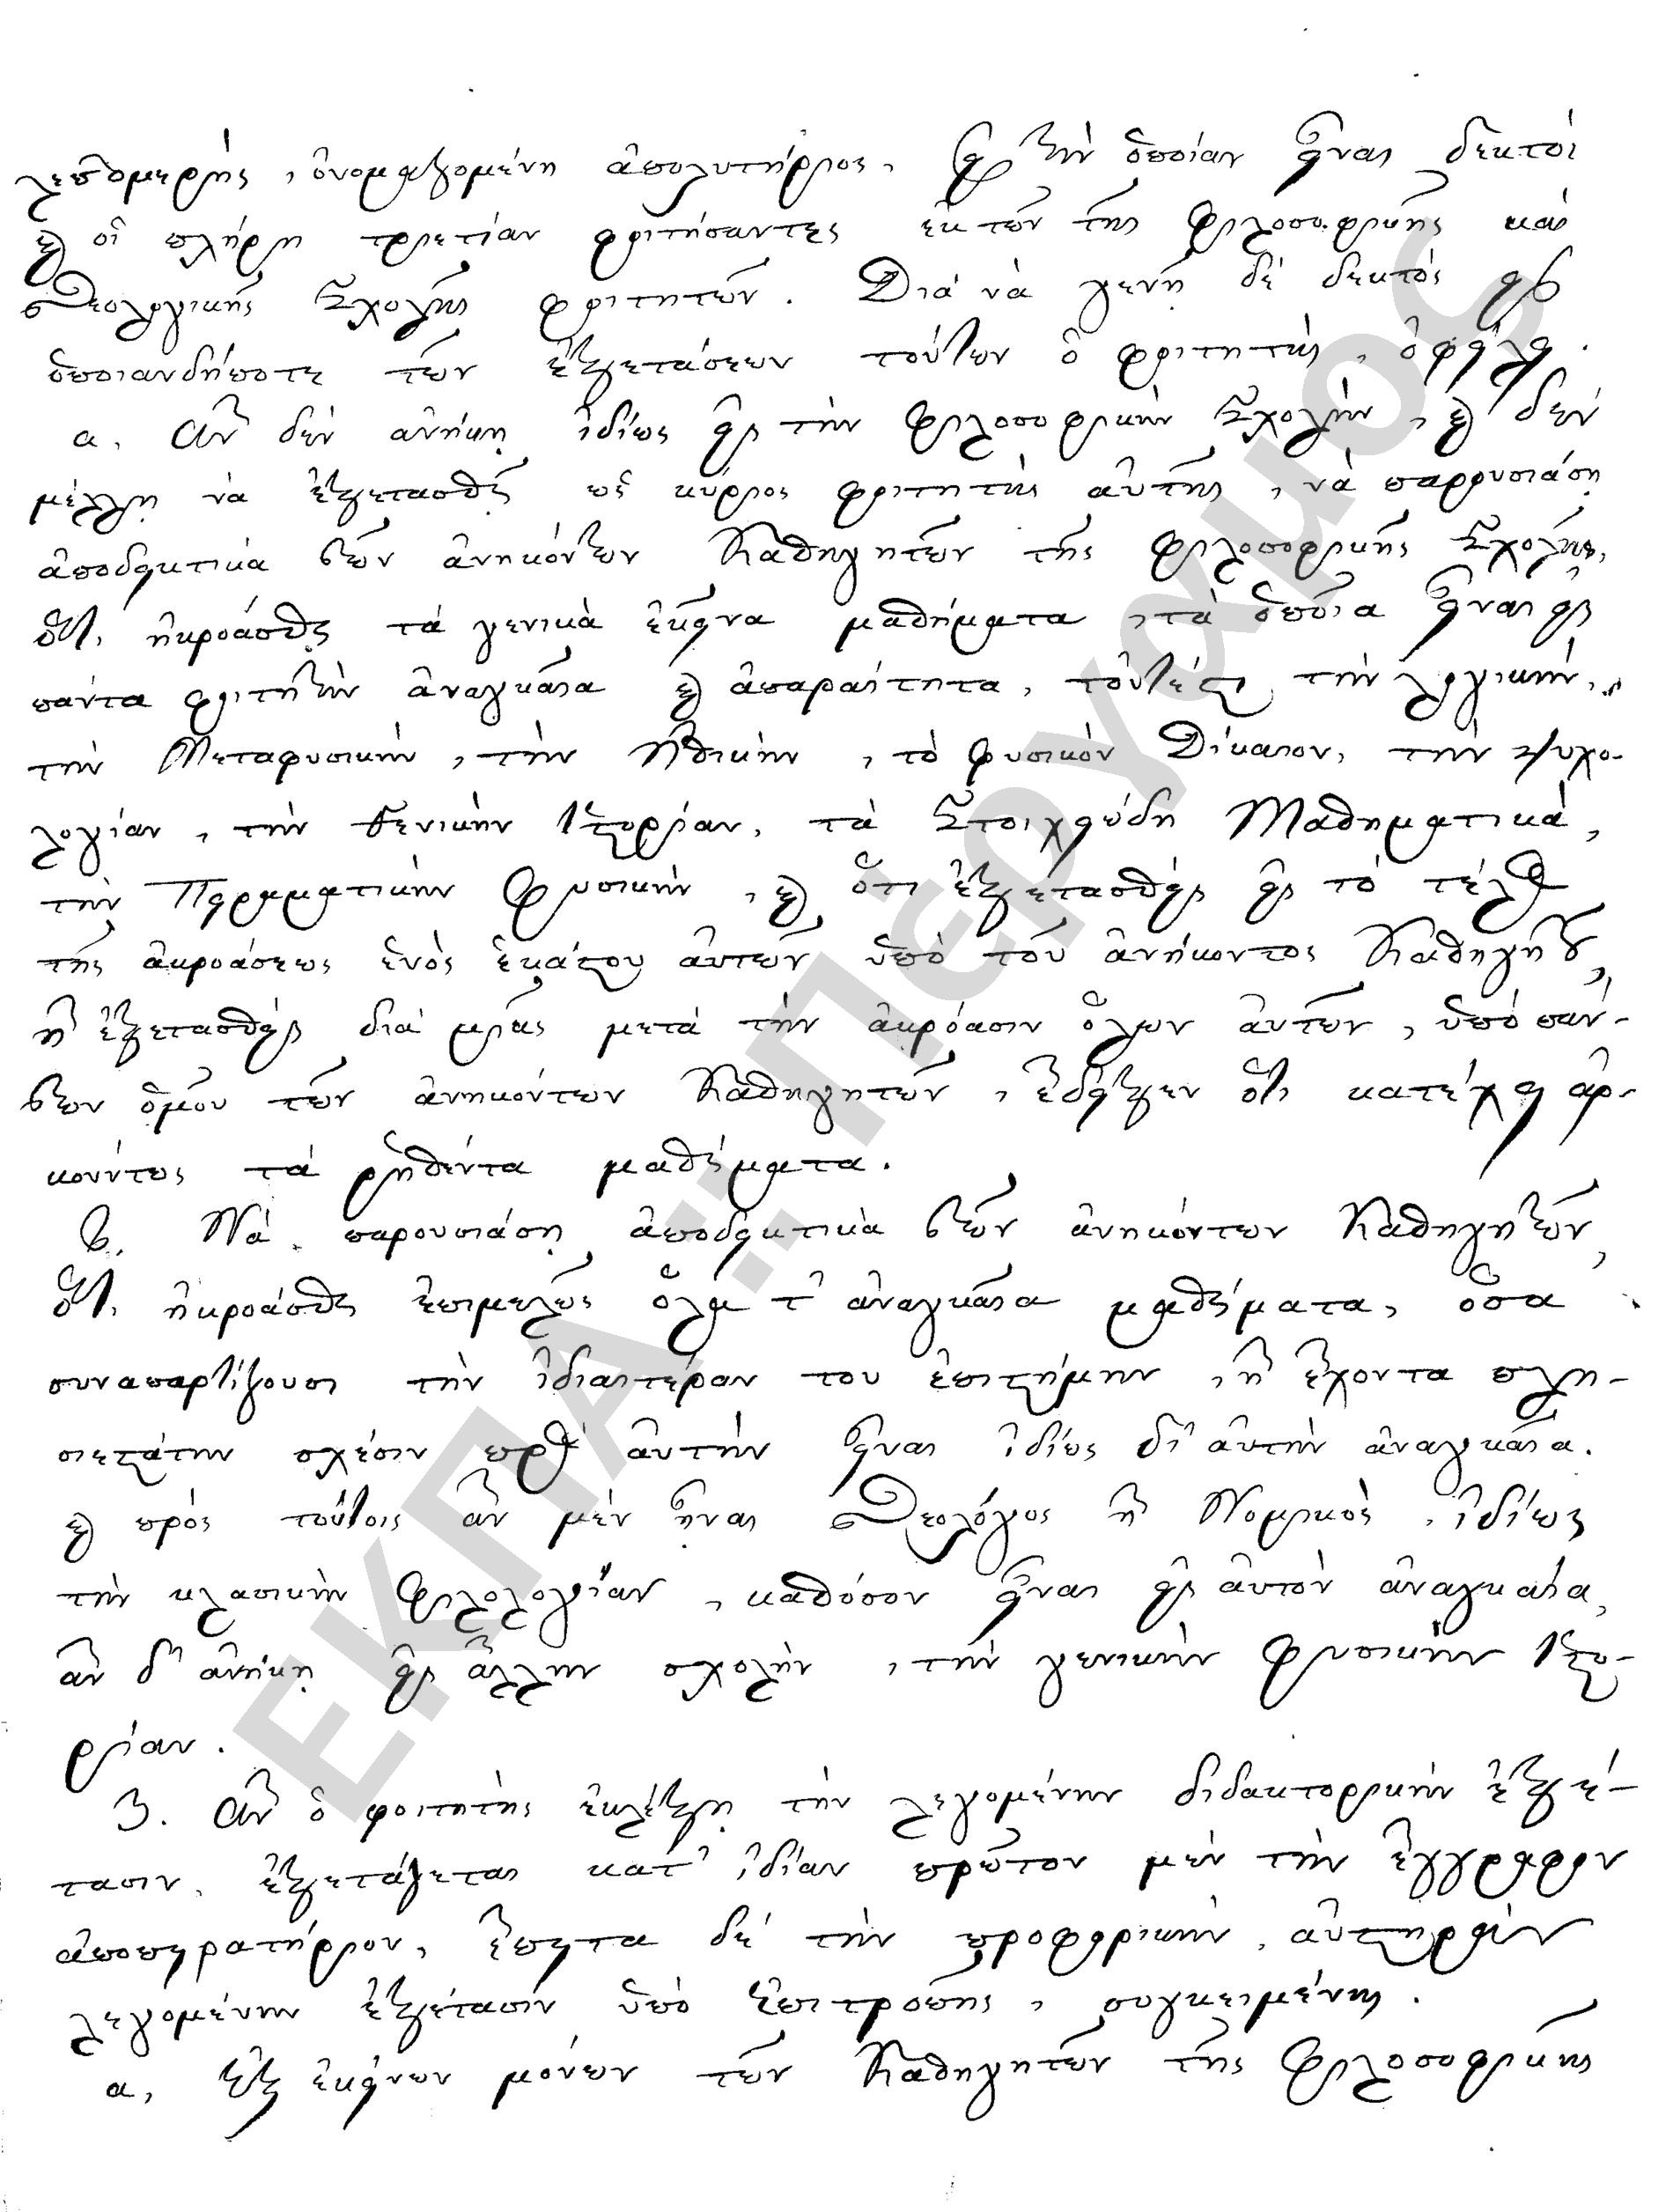 λεπτομερὴς, ὀνομαζομένη ἀπολυτήριος, εἰς τὴν ὁποίαν εἶναι δεκτοὶ
καὶ οἱ πλήρη τριετίαν φοιτήσαντες ἐκ τῶν τῆς φιλοσοφικῆς καὶ
Θεολογικῆς Σχολῆς φοιτητῶν. Διὰ νὰ γενῇ δὲ δεκτὸς εἰς
ὁποιανδήποτε τῶν ἐξετάσεων τούτων ὁ φοιτητὴς, ὀφείλει.
α, Ἂν δὲν ἀνήκῃ ἰδίως εἰς τὴν φιλοσοφικὴν Σχολὴν, καὶ δὲν
μέλλῃ νὰ ἐξετασθῇ ὡς κύριος φοιτητὴς αὐτῆς, νὰ παρουσιάσῃ
ἀποδεικτικὰ τῶν ἀνηκόντων Καθηγητῶν τῆς φιλοσοφικῆς Σχολῆς,
ὅτι ἠκροάσθη τὰ γενικὰ ἐκεῖνα μαθήματα, τὰ ὁποῖα εἶναι εἰς
πάντα φοιτητὴν ἀναγκαῖα καὶ ἀπαραίτητα, τουτέστι τὴν λογικὴν,
τὴν Μεταφυσικὴν, τὴν Ἠθικὴν, τὸ φυσικὸν Δίκαιον, τὴν ψυχο-
λογίαν, τὴν Γενικὴν Ἱστορίαν, τὰ Στοιχειώδη Μαθηματικὰ,
τὴν Πειραματικὴν φυσικὴν, καὶ ὅτι ἐξετασθεὶς εἰς τὸ τέλος
τῆς ἀκροάσεως ἑνὸς ἑκάστου αὐτῶν ὑπὸ τοῦ ἀνήκοντος Καθηγητοῦ,
ἢ ἐξετασθεὶς διὰ μιᾶς μετὰ τὴν ἀκρόασιν ὅλων αὐτῶν, ὑπὸ πάν-
των ὁμοῦ τῶν ἀνηκόντων Καθηγητῶν, ἔδειξεν ὅτι κατέχει ἀρ-
κούντως τὰ ῥηθέντα μαθήματα.
β, Νὰ παρουσιάσῃ ἀποδεικτικὰ τῶν ἀνηκόντων Καθηγητῶν,
ὅτι ἠκροάσθη ἐπιμελῶς ὅλα τ' ἀναγκαῖα μαθήματα, ὅσα
συναπαρτίζουσι τὴν ἰδιαιτέραν του ἐπιστήμην, ἢ ἔχοντα πλη-
σιεστάτην σχέσιν πρὸς αὐτὴν εἶναι ἰδίως δι' αὐτὴν ἀναγκαῖα.
καὶ πρὸς τούτοις ἂν μὲν ἦναι Θεολόγος ἢ Νομικὸς, ἰδίως
τὴν κλασικὴν φιλολογίαν, καθόσον εἶναι εἰς αὐτὸν ἀναγκαία,
ἂν δ' ἀνήκῃ εἰς ἄλλην σχολὴν, τὴν γενικὴν φυσικὴν Ἱστο-
ρίαν.
3. Ἂν ὁ φοιτητὴς ἐκλέξῃ τὴν λεγομένην διδακτορικὴν ἐξέ-
τασιν, ἐξετάζεται κατ' ἰδίαν πρῶτον μὲν τὴν ἔγγραφον
ἀποπειρατήριον, ἔπειτα δὲ τὴν προφορικὴν, αὐστηρὰν
λεγομένην ἐξέτασιν ὑπὸ Ἐπιτροπῆς, συγκειμένης.
α, Ἐξ ἐκείνων μόνων τῶν Καθηγητῶν τῆς φιλοσοφικῆς
ΕΚΠΑ :: Πέργαμος